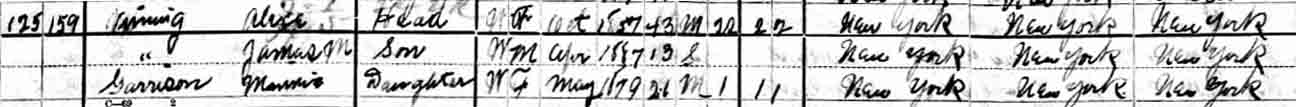 125 159 Alice Head W F Oct 1857 43 M 22 2 2 New York New York New York
" James M Son W M Apr 1887 13 S New York New York New York
Garrison Minnie Daughter W F May 1879 21 M 1 1 1 New York New York New York